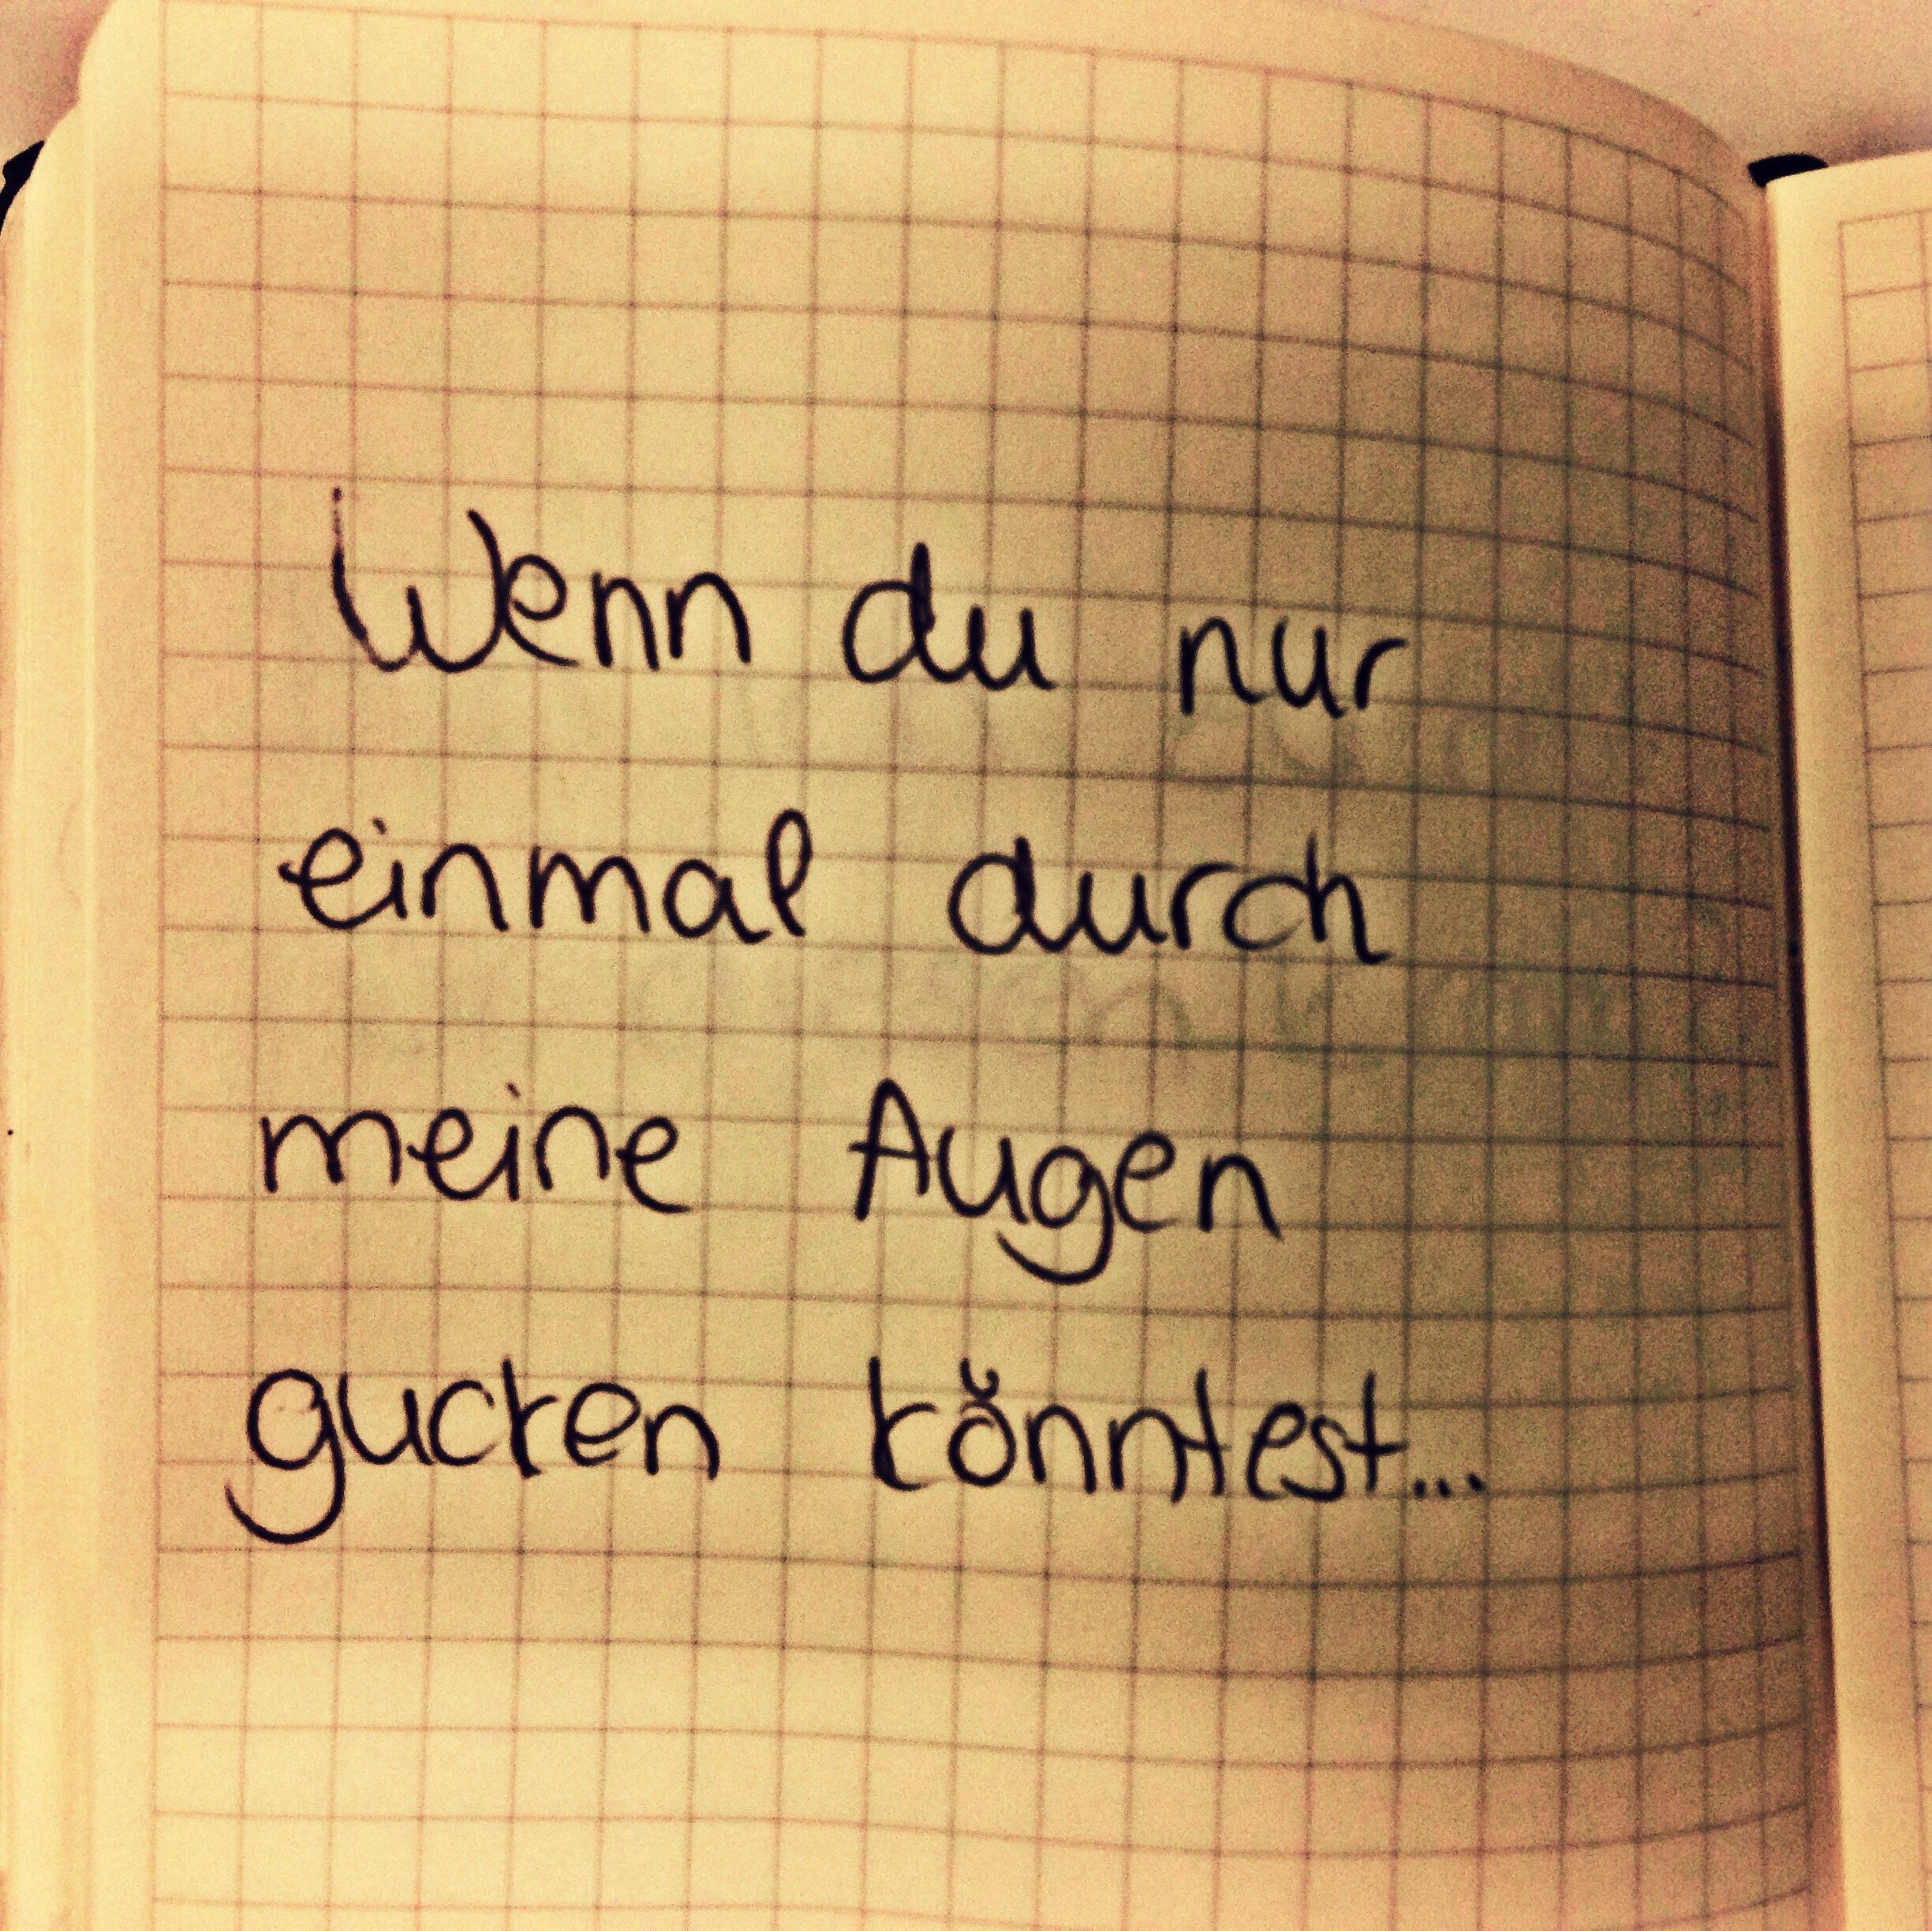 Wenn du nur
einmal durch
meine Augen
gucken könntest...